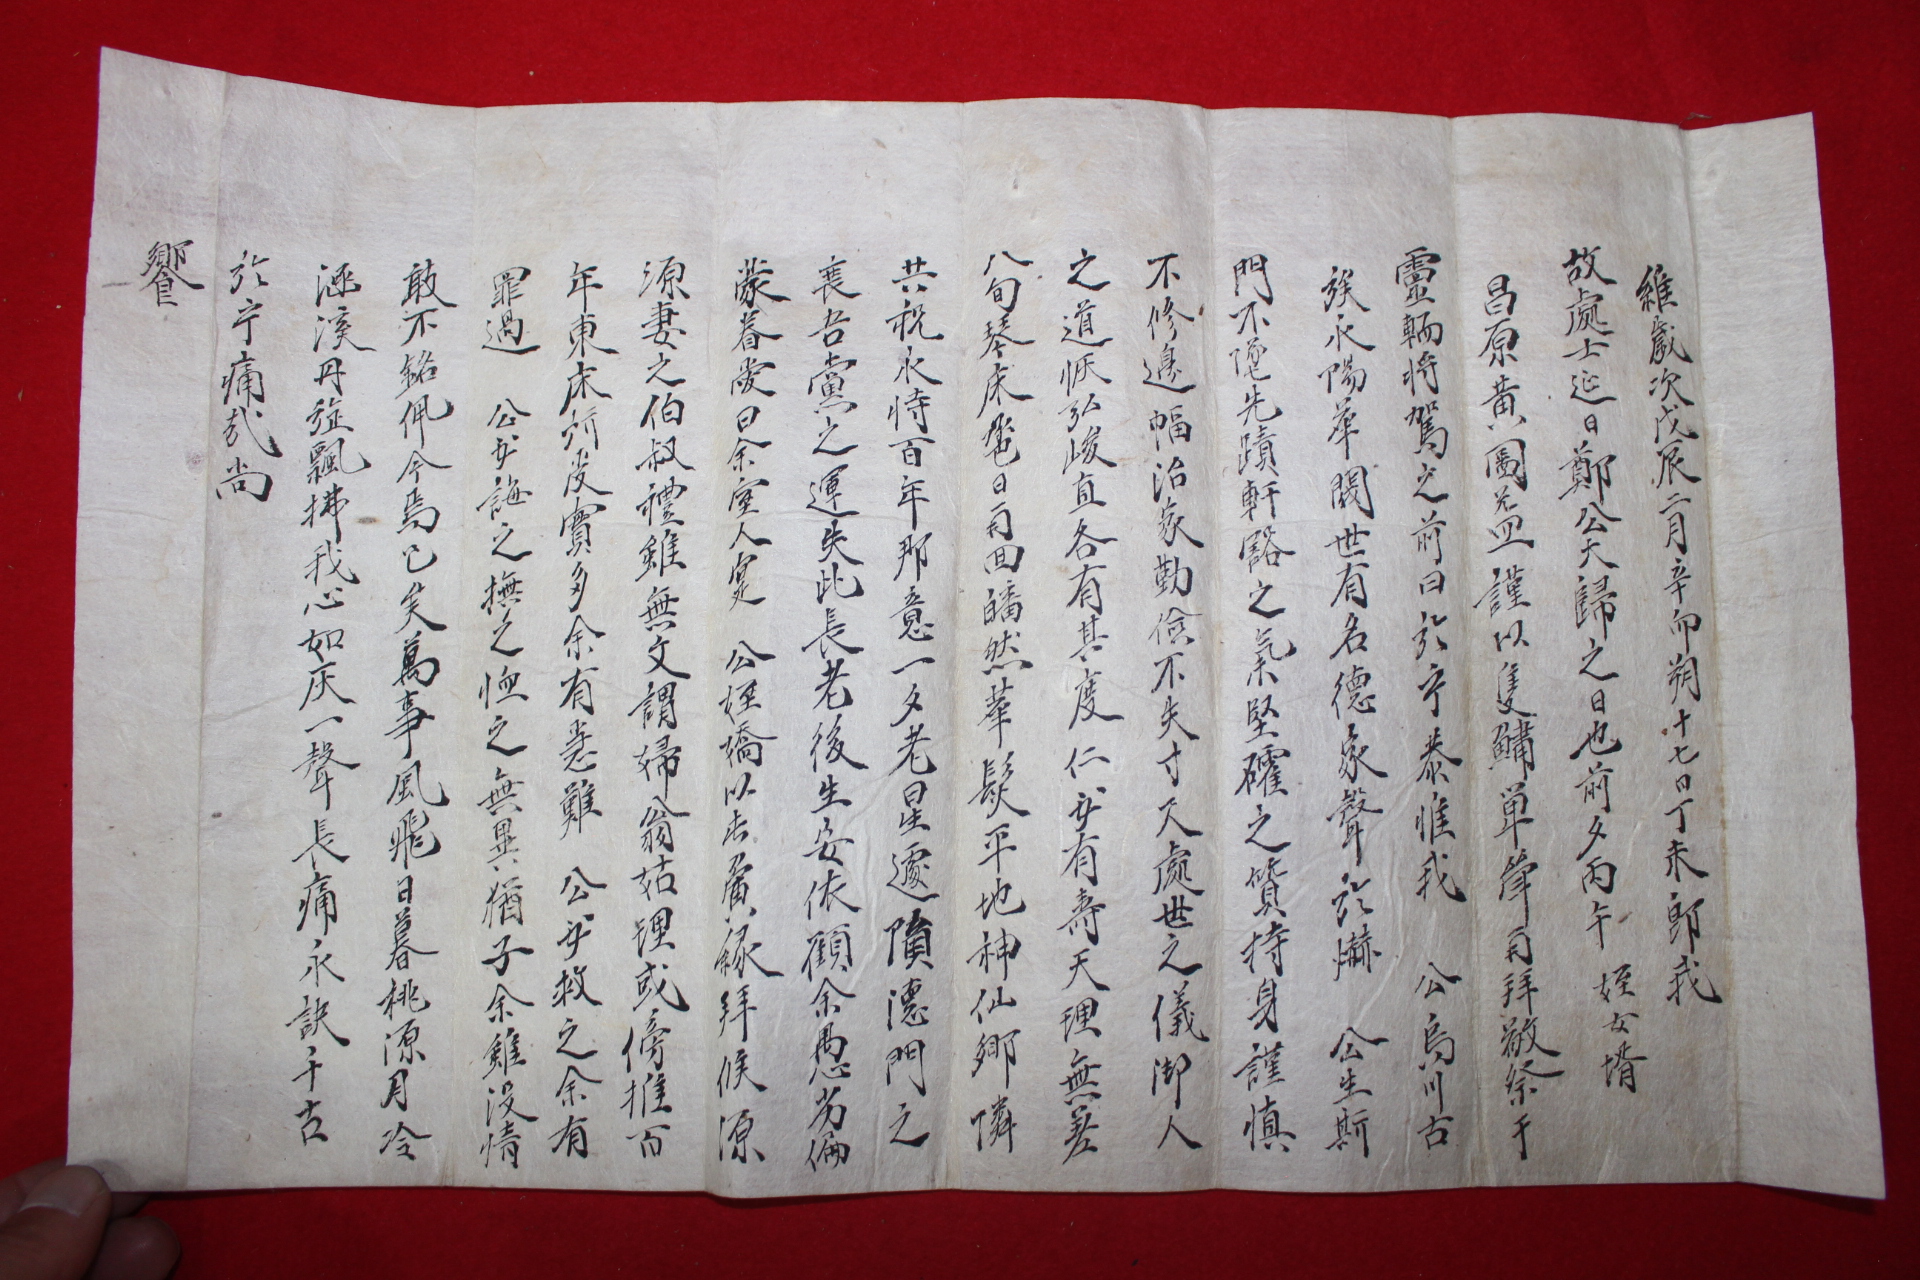 維歲次戊辰二月辛卯朔十七日丁未卽我
故處士迎日鄭公大歸之日也前夕丙午 姪女壻
昌原黃圖益謹以隻鷄單鐏再拜敬祭于
靈輀將駕之前曰於乎恭惟我 公烏川古
族永陽華閥世有名德家聲於爀 公生斯
門不墜先蹟軒豁之氣堅確之質持身謹愼
不修邊幅治家勤儉不失寸尺處世之儀御人
之道恢弘峻直各有其度仁必有壽天理無差
八旬琴床卺日再回皤然華髮平地神仙鄕隣
共祝永恃百年那意一夕老星遽隕德門之
喪吾黨之運失此長老後生安依顧余愚劣偏
蒙眷愛曰余室人寔 公姪嬌以舌屬緣拜候源
源妻之伯叔禮雖無文謂婦翁姑理或傍推百
年東床所受實多余有患難 公必救之余有
罪過 公必誨之撫之恤之無異猶子余雖沒情
敢不銘佩今焉已矣萬事風飛日暮桃源月冷
涵溪丹旌飄拂我心如灰一聲長痛永訣千古
於乎痛哉尙
饗